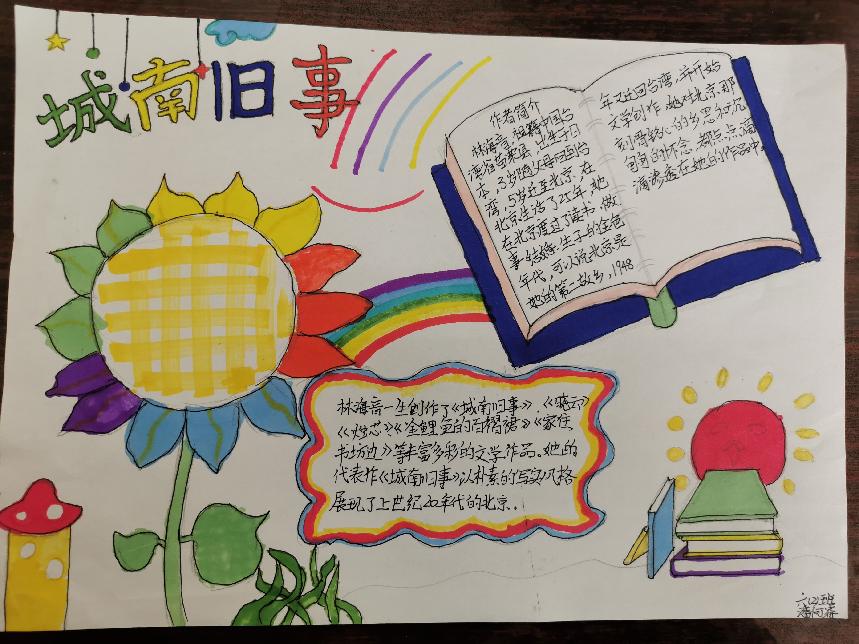 城南旧事
作者简介
林海音,祖籍中国台
湾省苗栗县,出生于日
本,3岁随父母回到台
湾,5岁迁至北京,在
北京生活了25年,她
在北京度过了读书、做
事、结婚、生子的金色
年代,可以说北京是
她的第二故乡,1948
年又迁回台湾,并开始
文学创作。她对北京那
刻骨铭心的乡思和沉
甸甸的怀念,都点点滴
滴渗透在她的作品中。
林海音一生创作了《城南旧事》、《晓云》
《烛芯》、《金鲤鱼的百褶裙》《家住
书坊边》等丰富多彩的文学作品。她的
代表作《城南旧事》以朴素的写实风格
展现了上世纪20年代的北京.
六(2)班